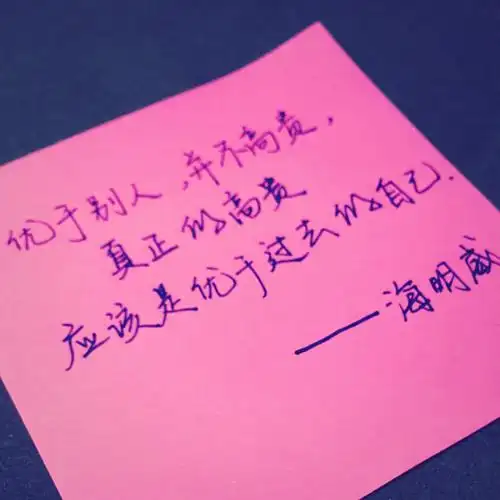 优于别人,并不高贵,
真正的高贵
应该是优于过去的自己.
——海明威